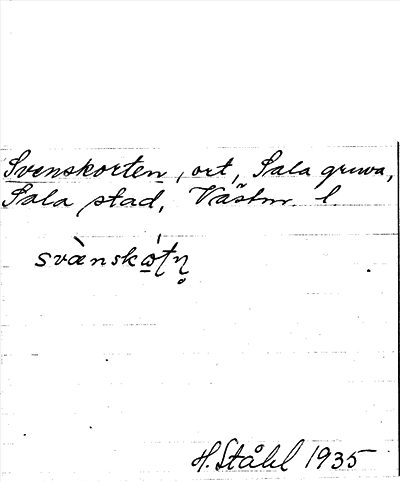 Svenskorten, ort, Sala gruva,
Sala stad, Västm. l.
svæ̀nskɷ́ʈɳ̥
H. Ståhl 1935